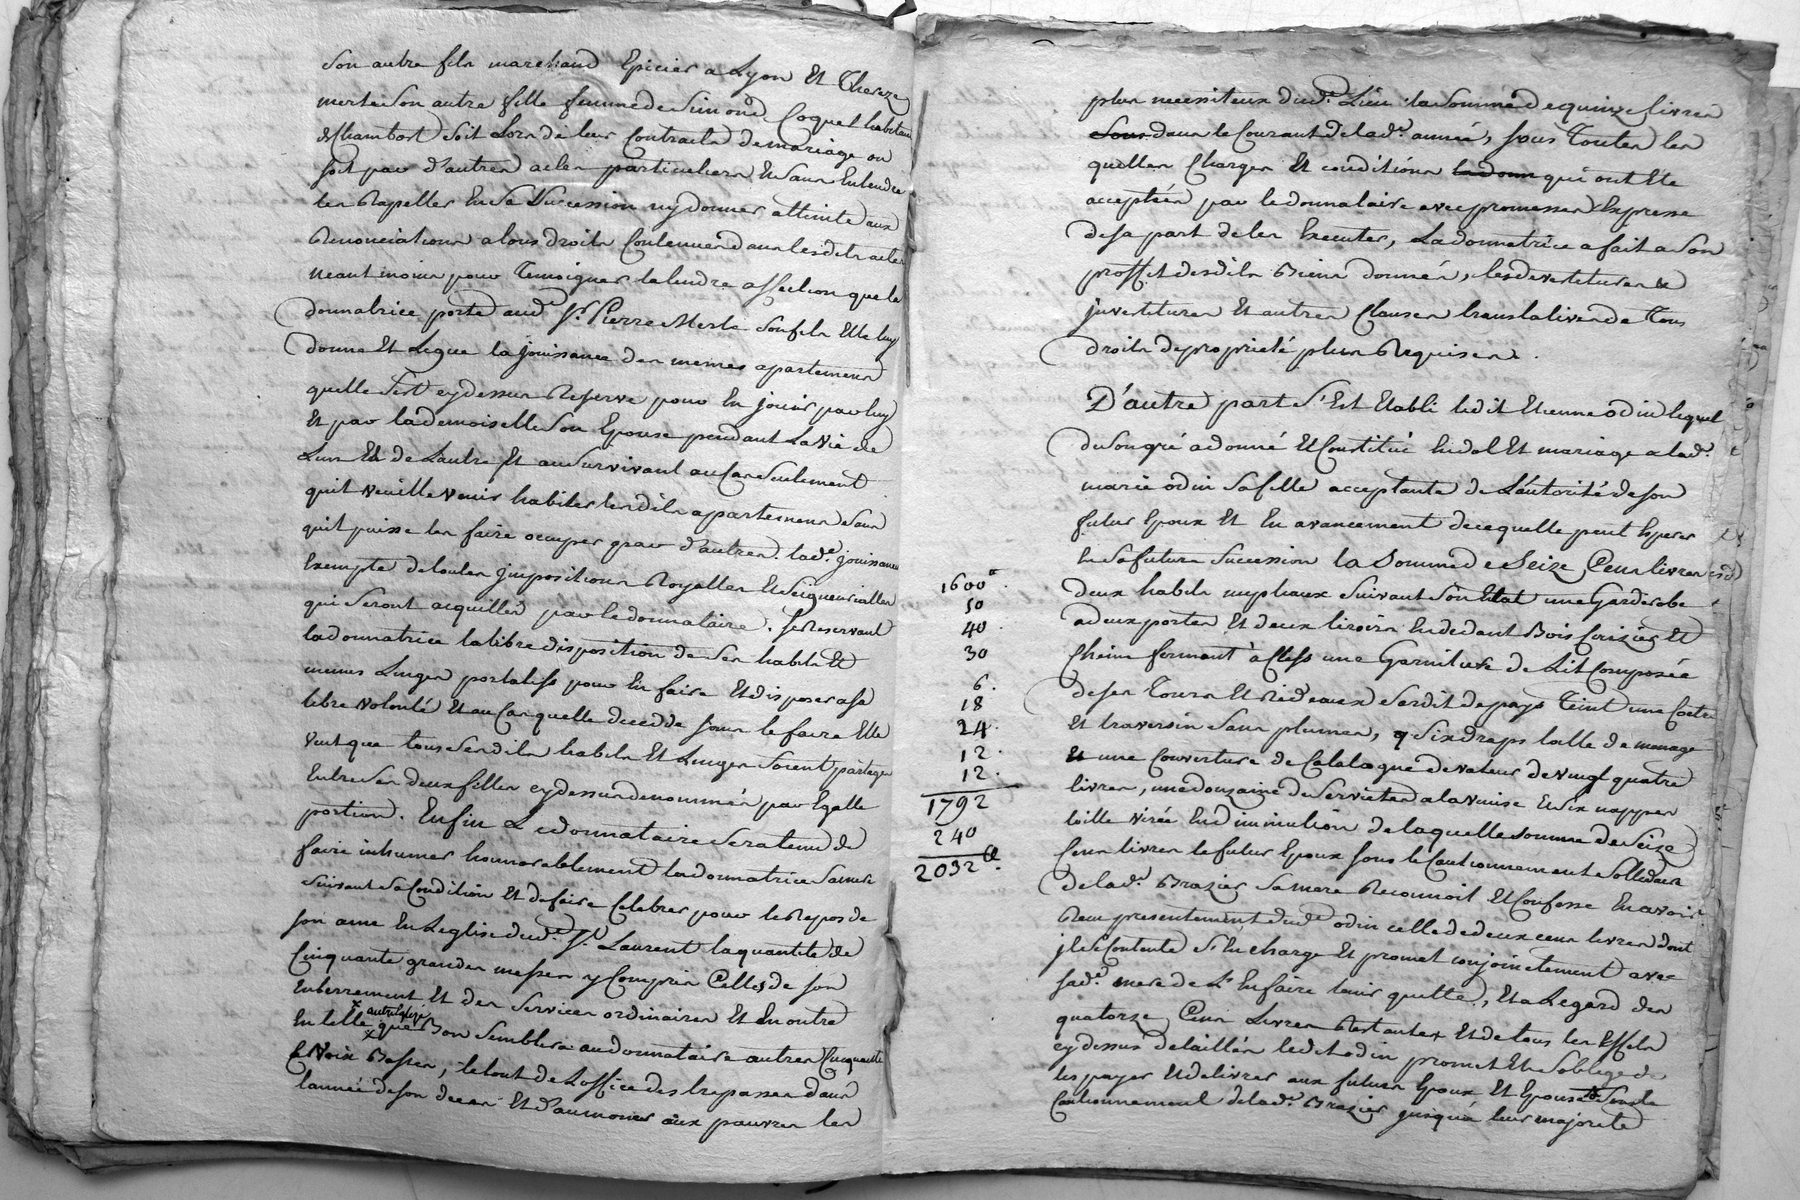 son autre fils marchand Epicier a Lyon Et Thereze
merle son autre fille femme de Simond Coquet habitans
de Chambost soit Lors de leur Contracts de mariage ou
soit par d'autres actes particuliers Et sans Entendre
les Rapeller En Sa Succession ny donner atteinte aux
Renonciations a tous droits Contenues dans lesdits actes
neantmoins pour Temoigner la tendre affection que la
donnatrice porte aud. Sr. Pierre Merle son fils Elle luy
donne Et Legue la jouissance des memes apartemens
quelle s'est cydessus Reservé pour En jouir par luy
Et par la demoiselle son Epouse pendant La vie de
Lun Et de Lautre Et au Survivant au Cas Seulement
quil veuille venir habiter lesdits apartemens sans
quil puisse les faire occuper par d'autres. lade. jouissance
Exempte de toutes jmpositions Royalles Et Seigneurialles
qui seront acquittés par le donnataire. Se Reservant
la donnatrice la libre disposition de Ses habits Et
menus Linges portatifs pour En faire Et disposer a sa
libre volonté Et au Cas quelle decedde sans le faire Elle
veut que tous Sesdits habits Et Linges Soient partagés
Entre Ses deux filles cydessus denommés par Egalle
portion. Enfin Le donnataire Sera tenu de
faire inhumer honnorablement la donnatrice Sa mere
Suivant Sa Condition Et de faire Celebrer pour le Repos de
son ame En Leglise dud. St. Laurent la quantité de
Cinquante grandes messes y Compris Celles de son
Enterrement Et des Services ordinaires Et En outre
En telle autre Eglise que Bon Semblera au donnataire autres Cinquante
a voix Basse, le tout de Loffice des trepassés dans
lannée de son deces Et D'aumoner aux pauvres les
plus necessiteux dud. Lieu la somme de quinze livres
dans le Courant de lade. année, sous Toutes les
quelles Charges Et conditions qui ont Eté
acceptées par le donnataire avec promesses Expresse
de sa part de les Executer, La donnatrice a fait a Son
proffit desdits Biens donnés, les devestitures &
jnvestitures Et autres Clauses translatives de Tous
droits de proprieté plus Requises.
D'autre part S'Est Etabli ledit Etienne odin lequel
de Son gré a donné Et Constitué En dot Et mariage a lade.
marie odin Sa fille acceptante de L'autorité de son
futur Epoux Et En avancement de ce quelle peut Esperer
En Sa future Succession la Somme de Seize Cens livres
deux habits nuptiaux Suivant Son Etat une Garderobe
a deux portes Et deux tiroirs En dedant Bois Cerizier Et
Chene fermant à Clefs une Garniture de Lit Composée
de ses Tours Et Rideaux Serdit de pays Teint une Coitre
Et traversin Sans plumes, Six draps toille de menage
une Couverture de Catalogne de valeur de vingt quatre
livres, une douzaine de Serviettes a la venise Et Six nappes
toille virée En diminution de laquelle somme de Seize
Cens livres le futur Epoux sous le Cautionnement Sollidaire
de lade. Brazier Sa mere Reconnoit Et Confesse En avoir
Reçu presentement dud. odin celle de deux cens livres dont
jl Se Contente S'En charge Et promet conjoinctement avec
Sade. mere de L'En faire tenir quitte, Et a Legard des
quatorze Cens Livres Restantes Et de tous les Effets
cy dessus detaillés ledit odin promet Et Soblige de
les payer Et delivrer aux futurs Epoux Et Epouse Sous le
Cautionnement de lade. Brazier jusqua leur majorité
1600
50
40
30
6
18
24
12
12
1792
240
2032